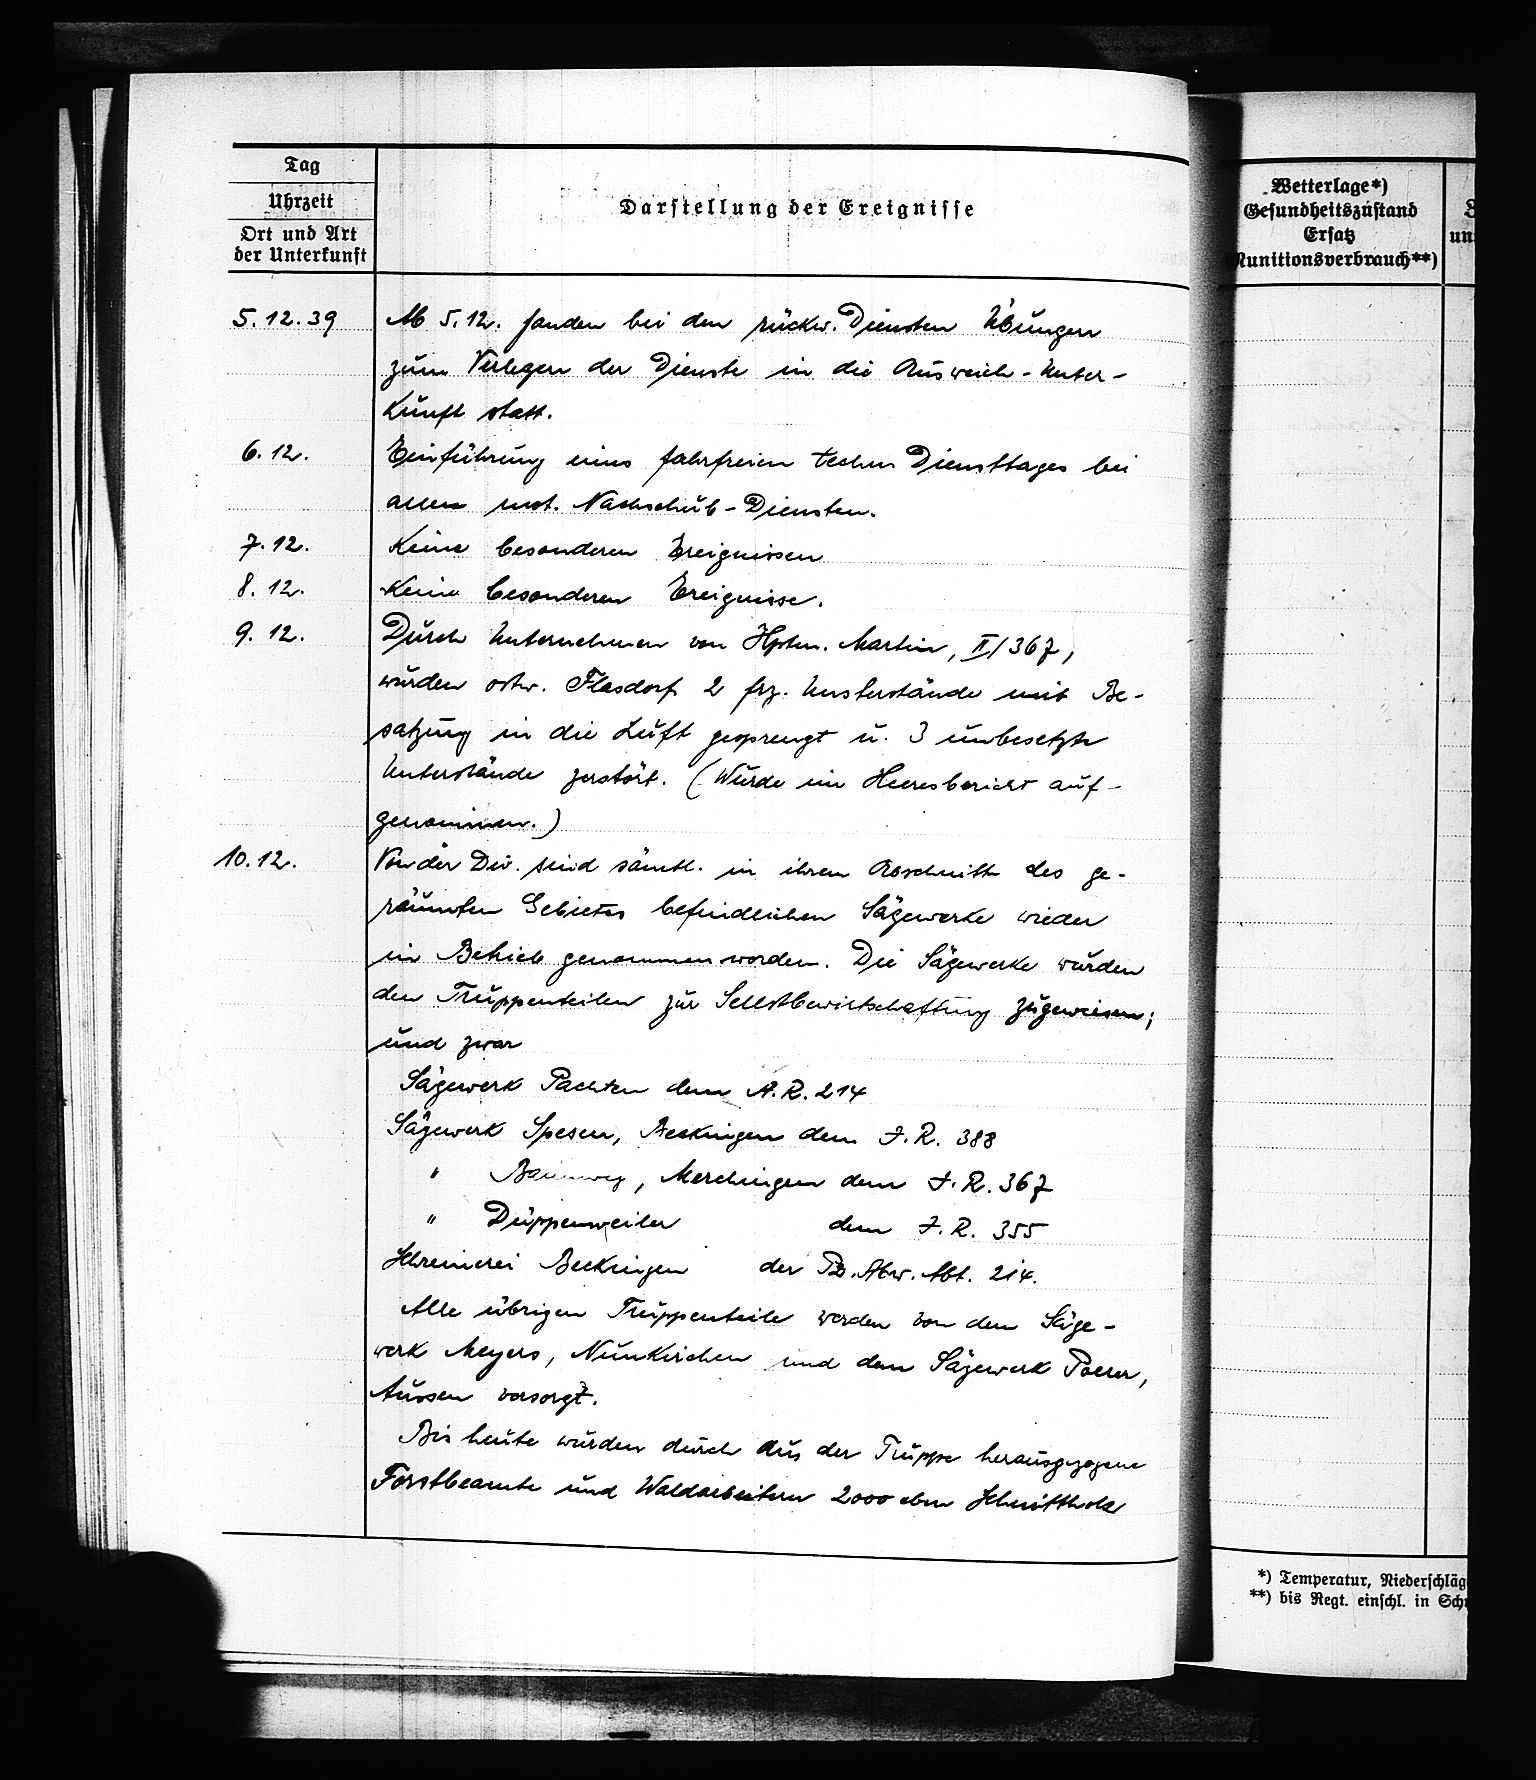 Tag
Uhrzeit
Ort und Art
der Unterkunft
Darstellung der Ereignisse
5.12.39 Ab 5.12. fanden bei den rückw. Diensten Übungen
zum Verlegen der Dienste in die Ausweich-Unter-
kunft statt.
6.12. Einführung eines fahrfreien techn Diensttages bei
allen mot. Nachschub-Diensten.
7.12. Keine besonderen Ereignissen
8.12. Keine besonderen Ereignisse.
9.12. Durch Unternehmen von Hptm. Martin, II/367,
wurden ostw. Flasdorf 2 frz. Unterstände mit Be-
satzung in die Luft gesprengt u. 3 unbesetzte
Unterstände zerstört. (Wurde im Heeresbericht auf-
genommen.)
10.12. Von der Div. sind sämtl. in ihrem Abschnitt des ge-
räumten Gebietes befindlichen Sägewerke wieder
in Betrieb genommen worden. Die Sägewerke wurden
den Truppenteilen zur Selbstbewirtschaftung zugewiesen;
und zwar
Sägewerk Pachten dem A.R. 214
Sägewerk Spesen, Beckingen dem J.R. 388
" , Merchingen dem J.R. 367
" Düppenweiler dem J.R. 355
Schreinerei Beckingen der Pz.Abw.Abt. 214.
Alle übrigen Truppenteile werden von dem Säge-
werk Meyers, Nunkirchen und dem Sägewerk
Aussen versorgt.
Bis heute wurden durch aus der Truppe herausgezogene
Forstbeamte und Waldarbeitern 2000 cbm Schnittholz
Wetterlage*)
Gesundheitszustand
Ersatz
Munitionsverbrauch**)
un
*) Temperatur, Niederschläg
**) bis Regt. einschl. in Sch